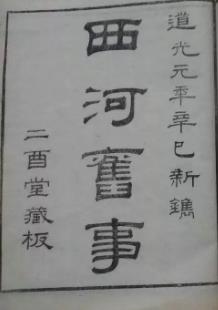 道光元年辛巳新鐫
西河舊事
二酉堂藏板